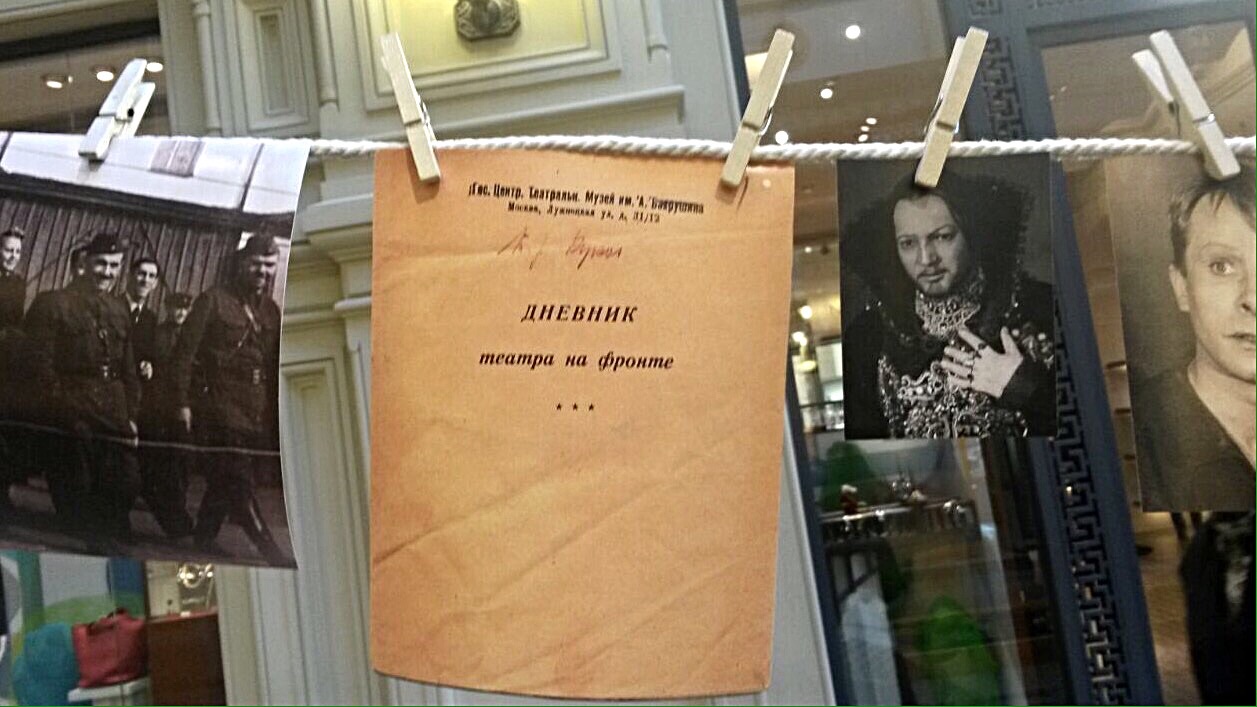 Гос. Центр. Театральн. Музей им. А. Бахрушина
Москва, Лужнецкая ул. д. 31/12
ДНЕВНИК
театра на фронте